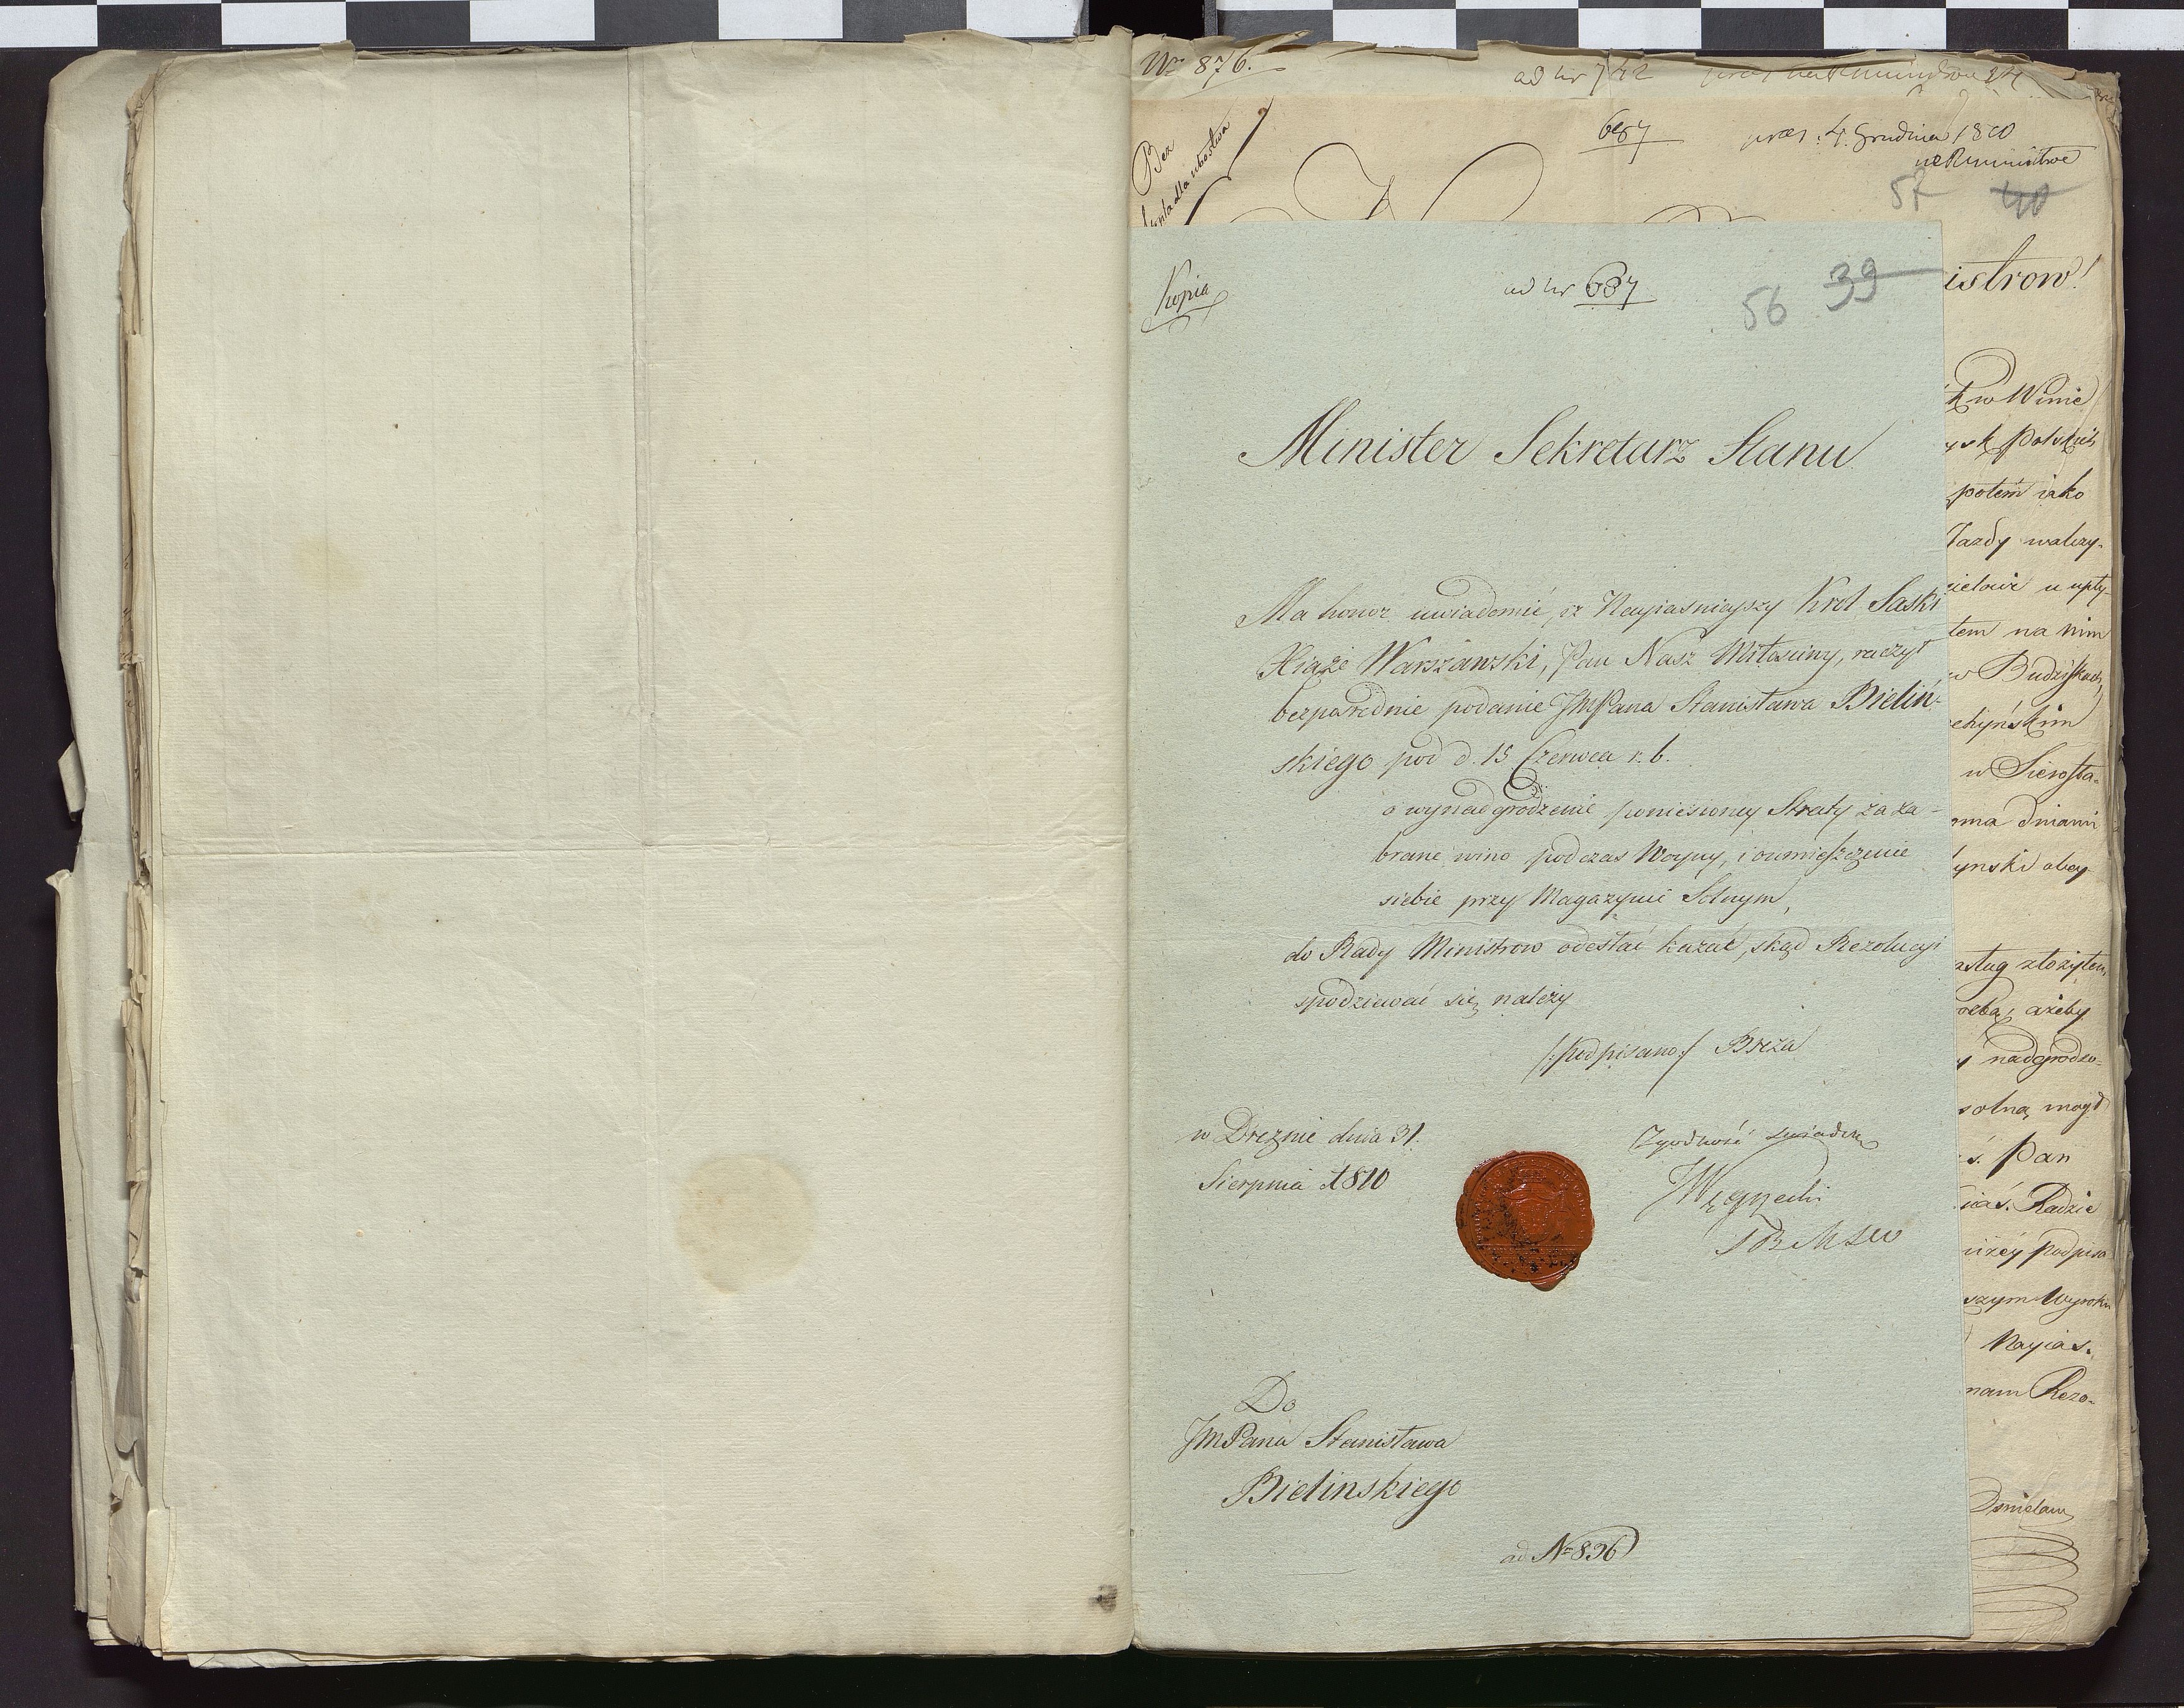 Nr 876.
ad nr 742
Bez
dla ubóstwa
687 prez. 4. Grudnia 1810
57 40
Kopia
ad nr 687
56 39
Minister Sekretarz Stanu
Ma honor uwiadomić, iż Nayiaśnieyszy Krol Saski
Xiąże Warszawski, Pan Nasz Miłościwy, raczył
bezpośrednie podanie JMPana Stanisława Bieliń-
skiego pod d. 15 Czerwca r. b.
o wynadgrodzenie poniesioney Straty za za-
brane wino podczas Woyny, i oumieszczenie
siebie przy Magazynie Solnym,
do Rady Ministrow odesłać kazał, skąd Rezolucyi
spodziewać się należy
/:podpisano:/ Breza
w Dreznie dnia 31.
Sierpnia 1810
Zgodność świadczę
Do
JMPana Stanisława
Bielinskiego
ad Nr 836
istrow!
w Winie
ysk Polskich
potem iako
Jazdy walczy-
tem na nim
w Budziskach
chyńskim
w Sierosła-
ma dniami
ynski obey-
asług złożyłem,
ażeby
nadgrodzo-
solną mógł
ś. Pan
iaś. Radzie
niżéy podpisa
szym Wyroku
Nayiaś.
nam Rezo-